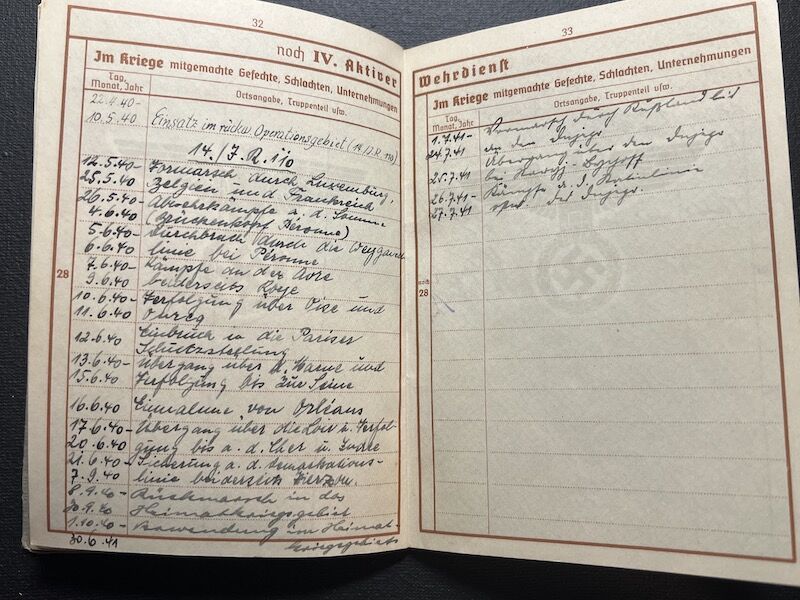 32
noch IV. Aktiver
Im Kriege mitgemachte Gefechte, Schlachten, Unternehmungen
Tag, Monat, Jahr
Ortsangabe, Truppenteil usw.
22.4.40-
10.5.40 Einsatz im rückw. Operationsgebiet (14./J.R. 110)
14./J.R. 110
12.5.40- Vormarsch durch Luxemburg,
25.5.40 Belgien und Frankreich
26.5.40- Abwehrkämpfe a. d. Somme
4.6.40 (Brückenkopf Péronne)
5.6.40- Durchbruch durch die Weygand
6.6.40 linie bei Péronne
7.6.40- Kämpfe an der Avre
9.6.40 beiderseits Roye
10.6.40- Verfolgung über Oise und
11.6.40 Ourcq
12.6.40 Einbruch in die Pariser
Schutzstellung
13.6.40- Übergang über d. Marne und
15.6.40 Verfolgung bis zur Seine
16.6.40 Einnahme von Orléans
17.6.40- Übergang über die Loir u. Verfol-
20.6.40 gung bis a. d. Cher u. Indre
21.6.40- Sicherung a. d. Demarkations-
7.9.40 linie beiderseits Vierzon.
8.9.40- Rückmarsch in das
30.9.40 Heimatkriegsgebiet
1.10.40- Verwendung im Heimat-
30.6.41 kriegsgebiet
28
33
Wehrdienst
Im Kriege mitgemachte Gefechte, Schlachten, Unternehmungen
Tag, Monat, Jahr
Ortsangabe, Truppenteil usw.
1.7.41- Vormarsch durch Rußland bis
24.7.41 an den Dnjepr
25.7.41 Übergang über den Dnjepr
bei
26.7.41- Kämpfe a. d.
27.7.41 des Dnjepr.
noch
28